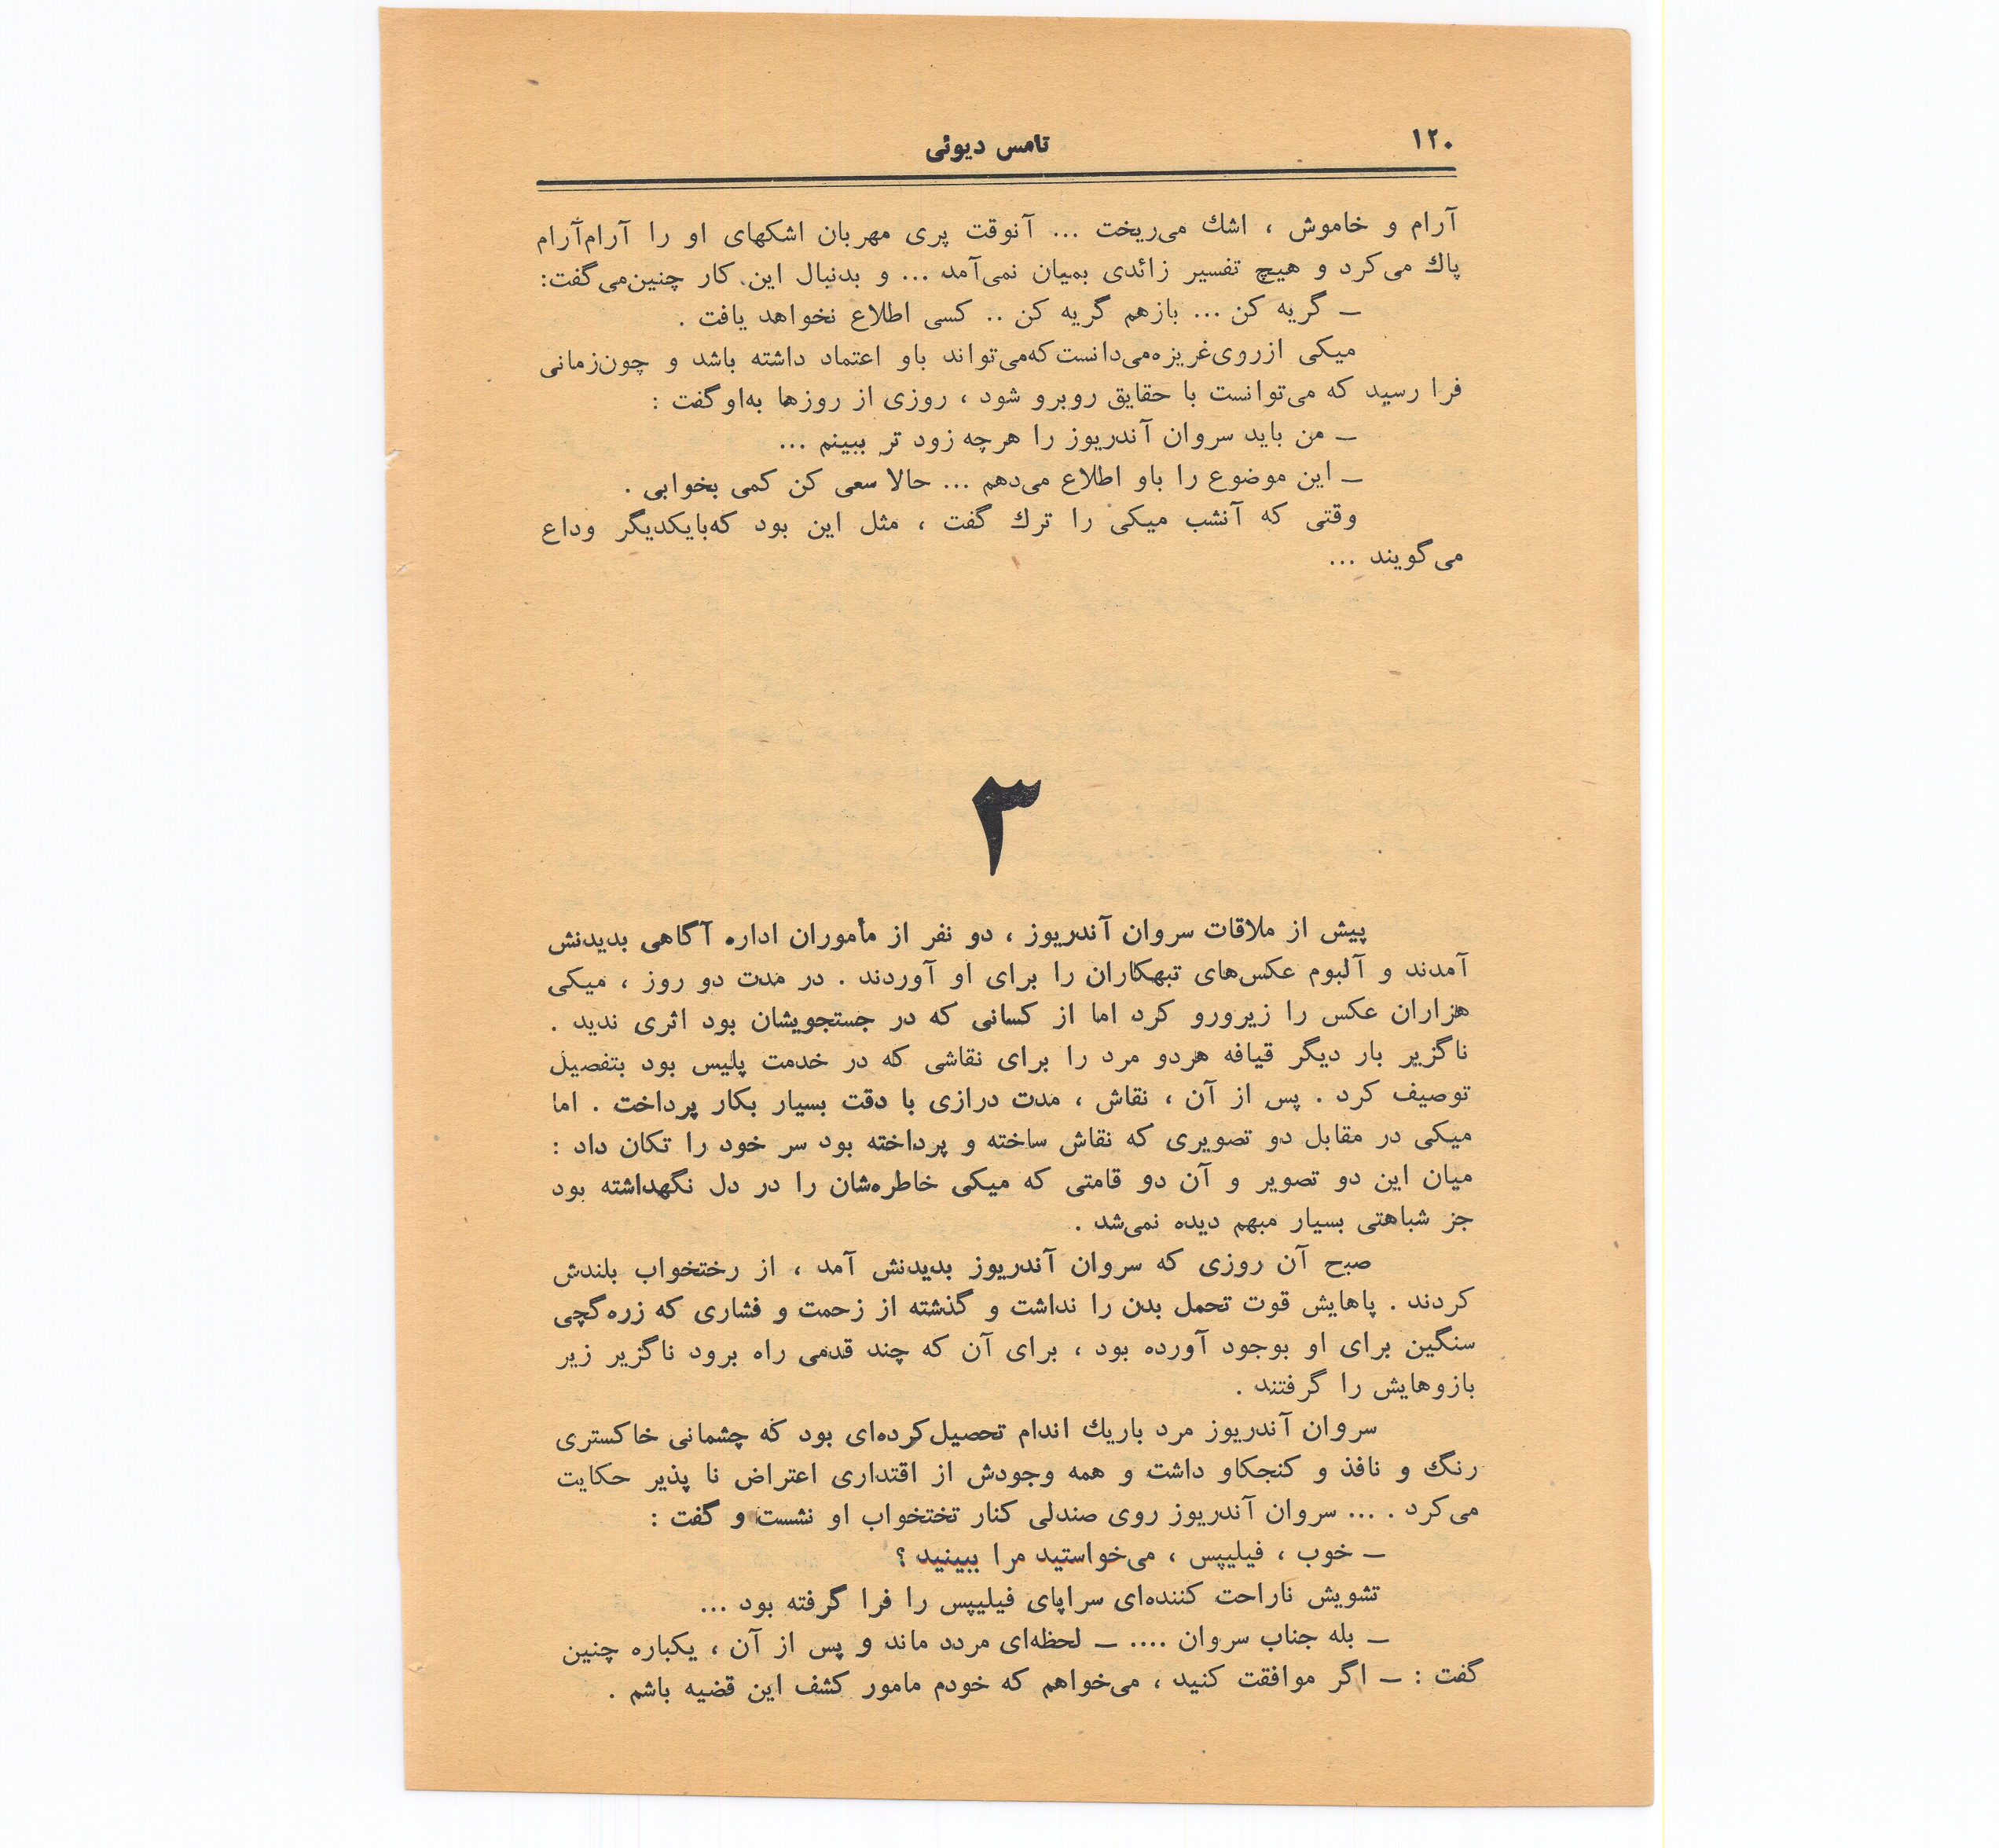 ۱۲۰
تامس دیوئی
آرام و خاموش ، اشك می‌ریخت ... آنوقت پری مهربان اشکهای او را آرام‌آرام
پاك می‌کرد و هیچ تفسیر زائدی بمیان نمی‌آمد ... و بدنبال این کار چنین‌می‌گفت:
ـ گریه کن ... بازهم گریه کن .. کسی اطلاع نخواهد یافت .
میکی ازروی‌غریزه‌می‌دانست‌که‌می‌تواند باو اعتماد داشته باشد و چون‌زمانی
فرا رسید که می‌توانست با حقایق روبرو شود ، روزی از روزها به‌او‌گفت :
ـ من باید سروان آندریوز را هرچه زود تر ببینم ...
ـ این موضوع را باو اطلاع می‌دهم ... حالا سعی کن کمی بخوابی .
وقتی که آنشب میکی را ترك گفت ، مثل این بود که‌بایکدیگر وداع
می‌گویند ...
۳
پیش از ملاقات سروان آندریوز ، دو نفر از مأموران اداره آگاهی بدیدنش
آمدند و آلبوم عکس‌های تبهکاران را برای او آوردند . در مدت دو روز ، میکی
هزاران عکس را زیرورو کرد اما از کسانی که در جستجویشان بود اثری ندید .
ناگزیر بار دیگر قیافه هردو مرد را برای نقاشی که در خدمت پلیس بود بتفصیل
توصیف کرد . پس از آن ، نقاش ، مدت درازی با دقت بسیار بکار پرداخت . اما
میکی در مقابل دو تصویری که نقاش ساخته و پرداخته بود سر خود را تکان داد :
میان این دو تصویر و آن دو قامتی که میکی خاطره‌شان را در دل نگهداشته بود
جز شباهتی بسیار مبهم دیده نمی‌شد .
صبح آن روزی که سروان آندریوز بدیدنش آمد ، از رختخواب بلندش
کردند . پاهایش قوت تحمل بدن را نداشت و گذشته از زحمت و فشاری که زره‌گچی
سنگین برای او بوجود آورده بود ، برای آن که چند قدمی راه برود ناگزیر زیر
بازوهایش را گرفتند .
سروان آندریوز مرد باریك اندام تحصیل‌کرده‌ای بود که چشمانی خاکستری
رنگ و نافذ و کنجکاو داشت و همه وجودش از اقتداری اعتراض نا پذیر حکایت
می‌کرد . ... سروان آندریوز روی صندلی کنار تختخواب او نشست و گفت :
ـ خوب ، فیلیپس ، می‌خواستید مرا ببینید ؟
تشویش ناراحت کننده‌ای سراپای فیلیپس را فرا گرفته بود ...
ـ بله جناب سروان .... ـ لحظه‌ای مردد ماند و پس از آن ، یکباره چنین
گفت : ـ اگر موافقت کنید ، می‌خواهم که خودم مامور کشف این قضیه باشم .